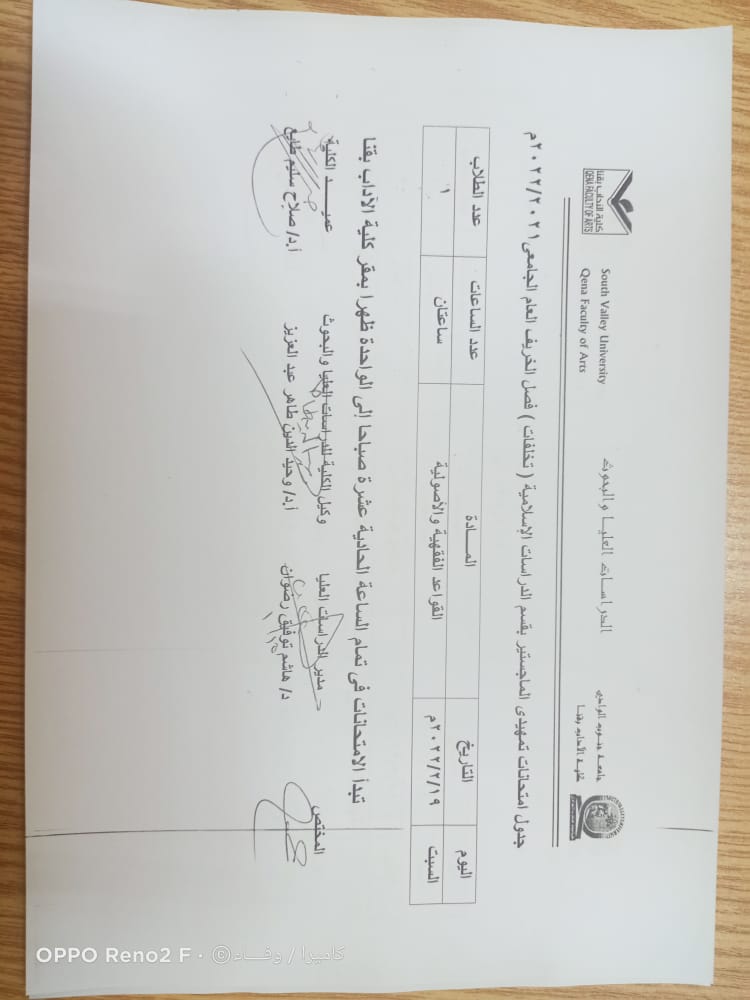 جامعة جنوب الوادي
كلية الآداب بقنا
الدراسات العليا والبحوث
South Valley University
Qena Faculty of Arts
كلية الآداب بقنا
QENA FACULTY OF ARTS
جدول امتحانات تمهيدى الماجستير بقسم الدراسات الإسلامية ( تخلفات ) فصل الخريف العام الجامعى ٢٠٢٢/٢٠٢١م
اليوم التاريخ المــادة عدد الساعات عدد الطلاب
السبت ٢٠٢٢/٢/١٩م القواعد الفقهية والأصولية ساعتان ١
تبدأ الامتحانات فى تمام الساعة الحادية عشرة صباحا إلى الواحدة ظهرا بمقر كلية الآداب بقنا
المختص مدير الدراسات العليا وكيل الكلية للدراسات العليا والبحوث عميــد الكلية
د/ هاشم توفيق رضوان أ.د/ وحيد الدين طاهر عبد العزيز أ.د/ صلاح سليم طايع
OPPO Reno2 F · ©كاميرا / وفــاء